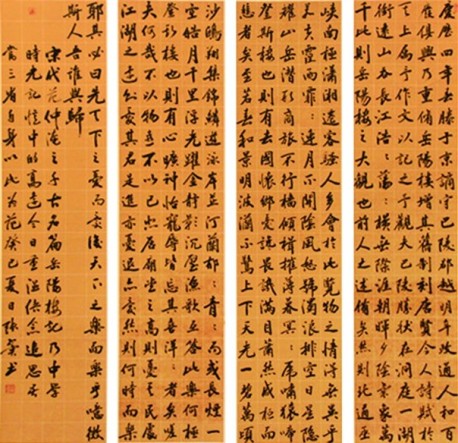 慶歷四年春滕子京謫守巴陵郡越明年政通人和百
廢俱興乃重修岳陽樓增其舊制刻唐賢今人詩賦於
其上屬予作文以記之予觀夫巴陵勝狀在洞庭一湖
銜遠山吞長江浩〻蕩〻橫無際涯朝暉夕陰氣象萬
千此則岳陽樓之大觀也前人之述備矣然則北通巫
峽南極瀟湘遷客騷人多會於此覽物之情得無異乎
若夫霪雨霏〻連月不開陰風怒號濁浪排空日星隱
耀山岳潛形商旅不行檣傾楫摧薄暮冥〻虎嘯猿啼
登斯樓也則有去國懷鄉憂讒畏譏滿目蕭然感極而
悲者矣至若春和景明波瀾不驚上下天光一碧萬頃
沙鷗翔集錦鱗游泳岸芷汀蘭郁〻青〻而或長煙一
空皓月千里浮光躍金靜影沉璧漁歌互答此樂何極
登斯樓也則有心曠神怡寵辱皆忘其喜洋〻者矣嗟
夫何哉不以物喜不以己悲居廟堂之高則憂其民處
江湖之遠則憂其君是進亦憂退亦憂然則何時而樂
耶其必曰先天下之憂而憂後天下之樂而樂乎噫微
斯人吾誰與歸
宋代范仲淹之千古名篇岳陽樓記乃中學
時光記憶中的高今日重溫念追思
三省自身以此為範癸巳夏日張書